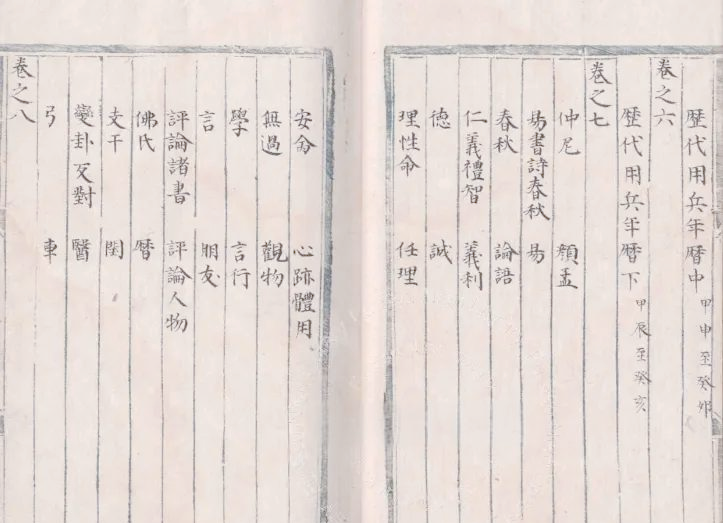 歷代用兵年曆中 甲申至癸卯
卷之六
歷代用兵年曆下 甲辰至癸亥
卷之七
仲尼 顏孟
易書詩春秋 易
春秋 論語
仁義禮智 義利
德 誠
理性命 任理
安分 心跡體用
無過 觀物
學 言行
言 朋友
評論諸書 評論人物
佛氏 曆
支干 閏
變卦反對 醫
弓 車
卷之八